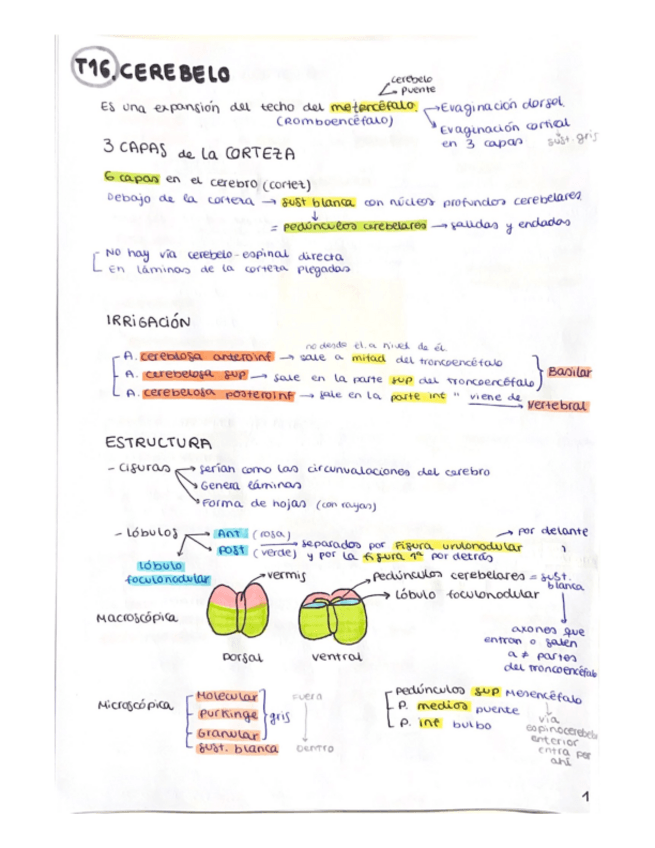 T16. CEREBELO
cerebelo
Puente
Es una expansión del techo del metencéfalo.
(Romboencéfalo)
→ Evaginación dorsal
Evaginación cortical
en 3 capas sust. gris
3 CAPAS de la CORTEZA
6 capas en el cerebro (cortez)
Debajo de la corteza → sust blanca con núcleos profundos cerebelares
= pedúnculos cerebelares → salidas y entradas
No hay vía cerebelo-espinal directa
En láminas de la corteza plegadas
IRRIGACIÓN
no desde el a nivel de él
A. cereblosa anteroinf → sale a mitad del troncoencéfalo
A. cerebelosa sup → sale en la parte sup del troncoencéfalo
Basilar
A. cerebelosa posteroinf → sale en la parte inf " viene de
vertebral
ESTRUCTURA
- Cisuras → serían como las circunvalaciones del cerebro
→ Genera láminas
Forma de hojas (con rayas)
→ por delante
- Lóbulos → Ant. (rosa)
Post (verde) separados por Fisura uvulonodular
y por la fisura 1ª por detrás
Lóbulo
foculonodular
vermis
Pedúnculos cerebelares = sust.
blanca
Lóbulo foculonodular
Macroscópica
axones que
entran o salen
a ≠ partes
del troncoencéfalo
Dorsal
ventral
Microscópica
Molecular
Purkinge
Granular
gris
Sust. blanca
Fuera
Dentro
Pedúnculos sup Mesencéfalo
P. medios puente
P. inf bulbo
vía
espinocerebelo
anterior
entra por
ahí
1